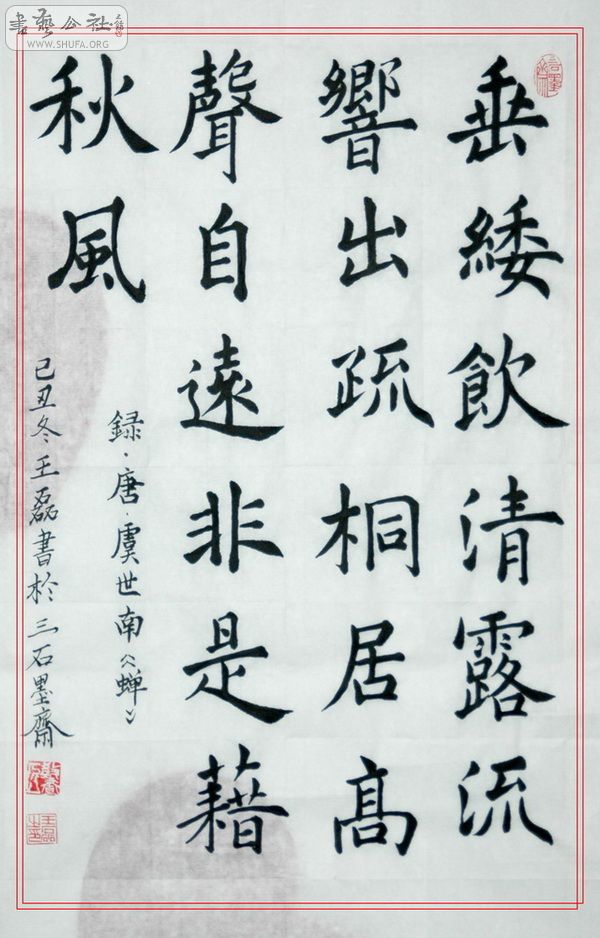 垂緌飲清露流
響出疏桐居高
聲自遠非是藉
秋風
録·唐·虞世南《蝉》
己丑冬王磊書於三石墨齋
書藝公社
WWW.SHUFA.ORG